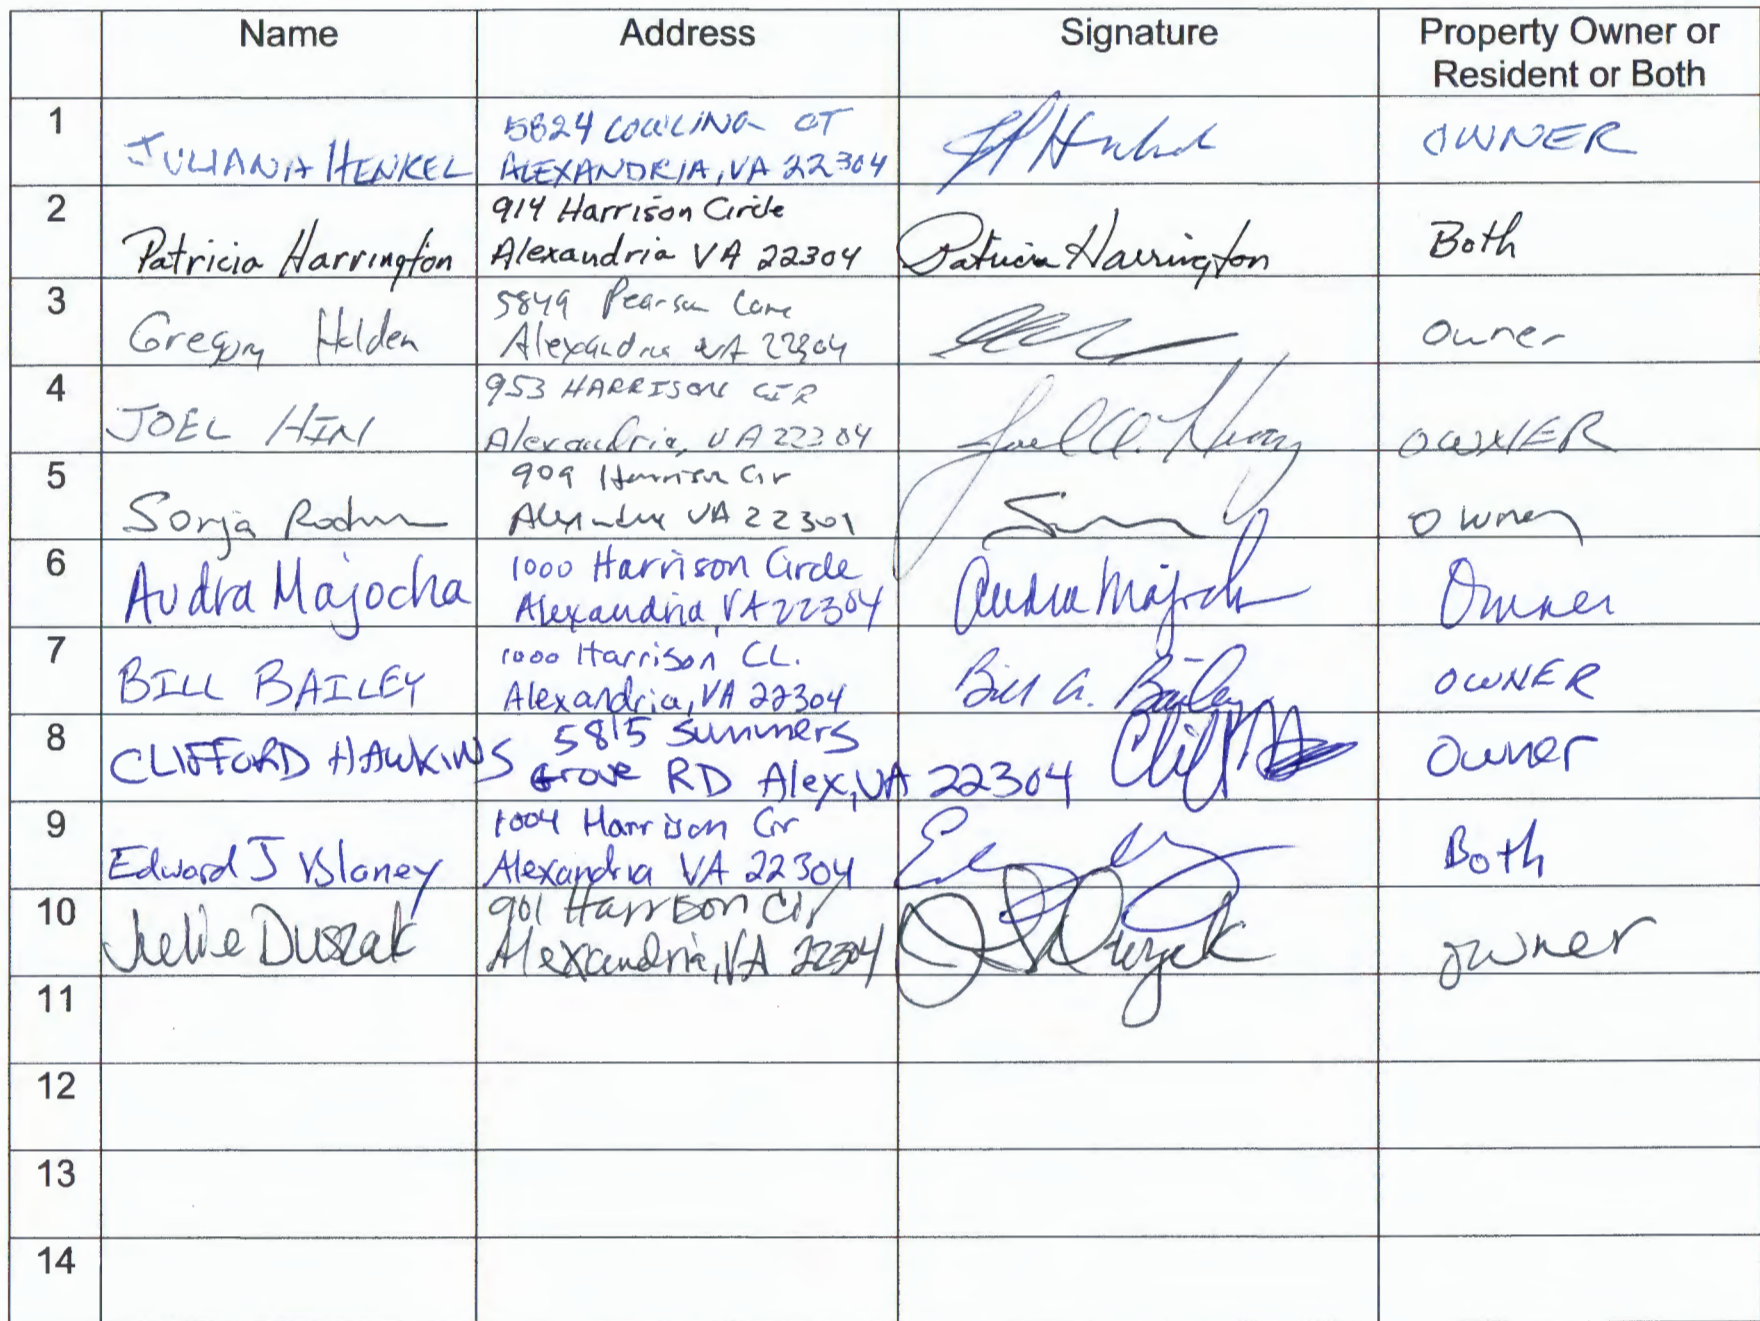 Name Address Signature Property Owner or
Resident or Both
1 JULIANA HENKEL 5824 COWLING CT
ALEXANDRIA, VA 22304 OWNER
2 Patricia Harrington 914 Harrison Circle
Alexandria VA 22304 Patricia Harrington Both
3 Gregory Holden 5849 Pearson Lane
Alexandria VA 22304 Owner
4 JOEL 953 HARRISON CIR
Alexandria, VA 22304 Joel OWNER
5 Sonja 909 Harrison Cir
Alexandria VA 22301 Owner
6 Audra Majocha 1000 Harrison Circle
Alexandria, VA 22304 Audra Majocha Owner
7 BILL BAILEY 1000 Harrison CL.
Alexandria, VA 22304 Bill G. Bailey OWNER
8 CLIFFORD HAWKINS 5815 Summers
Grove RD Alex, VA 22304 Owner
9 Edward J Blaney 1004 Harrison Cir
Alexandria VA 22304 Both
10 Julie Duszak 901 Harrison Cir
Alexandria, VA 22304 Duszak owner
11
12
13
14